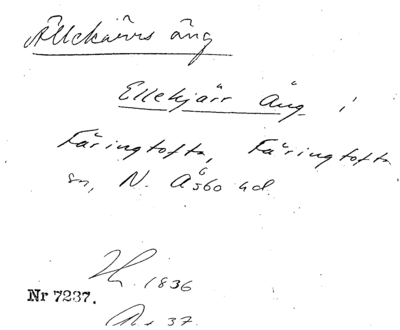 Ällekärrs äng
Ellekjärr Äng i
Färingtofta, Färingtofta
sn, N. Åsbo hd.
1836
Nr 7237.
37